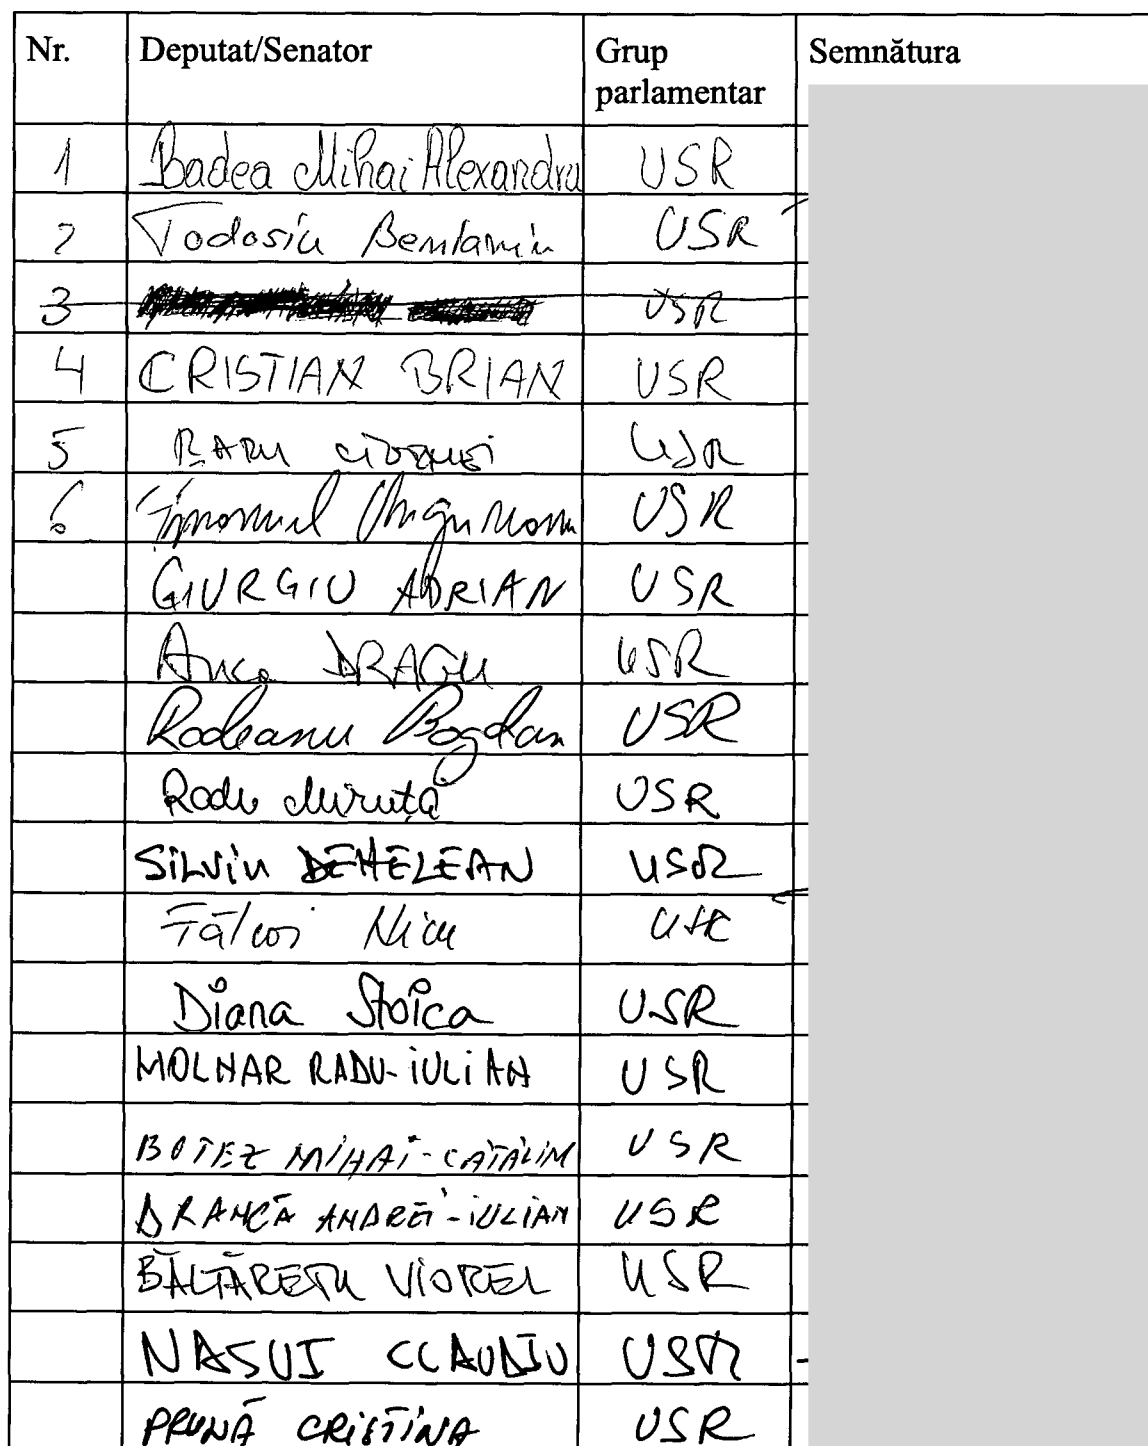 Nr. Deputat/Senator Grup parlamentar Semnătura
1 Badea Mihai Alexandru USR
2 Todosiu Beniamin USR
3 USR
4 CRISTIAN BRIAN USR
5 RADU CIORNEI USR
6 Emanuel Ungureanu USR
GIURGIU ADRIAN USR
Anca DRAGU USR
Rodeanu Bogdan USR
Radu Miruță USR
SILVIU DEHELEAN USR
Fălcoi Nicu USR
Diana Stoica USR
MOLNAR RADU-IULIAN USR
BOTEZ MIHAI-CĂTĂLIN USR
DRANCĂ ANDREI-IULIAN USR
BĂLTĂREȚU VIOREL USR
NASUI CLAUDIU USR
PRUNĂ CRISTINA USR